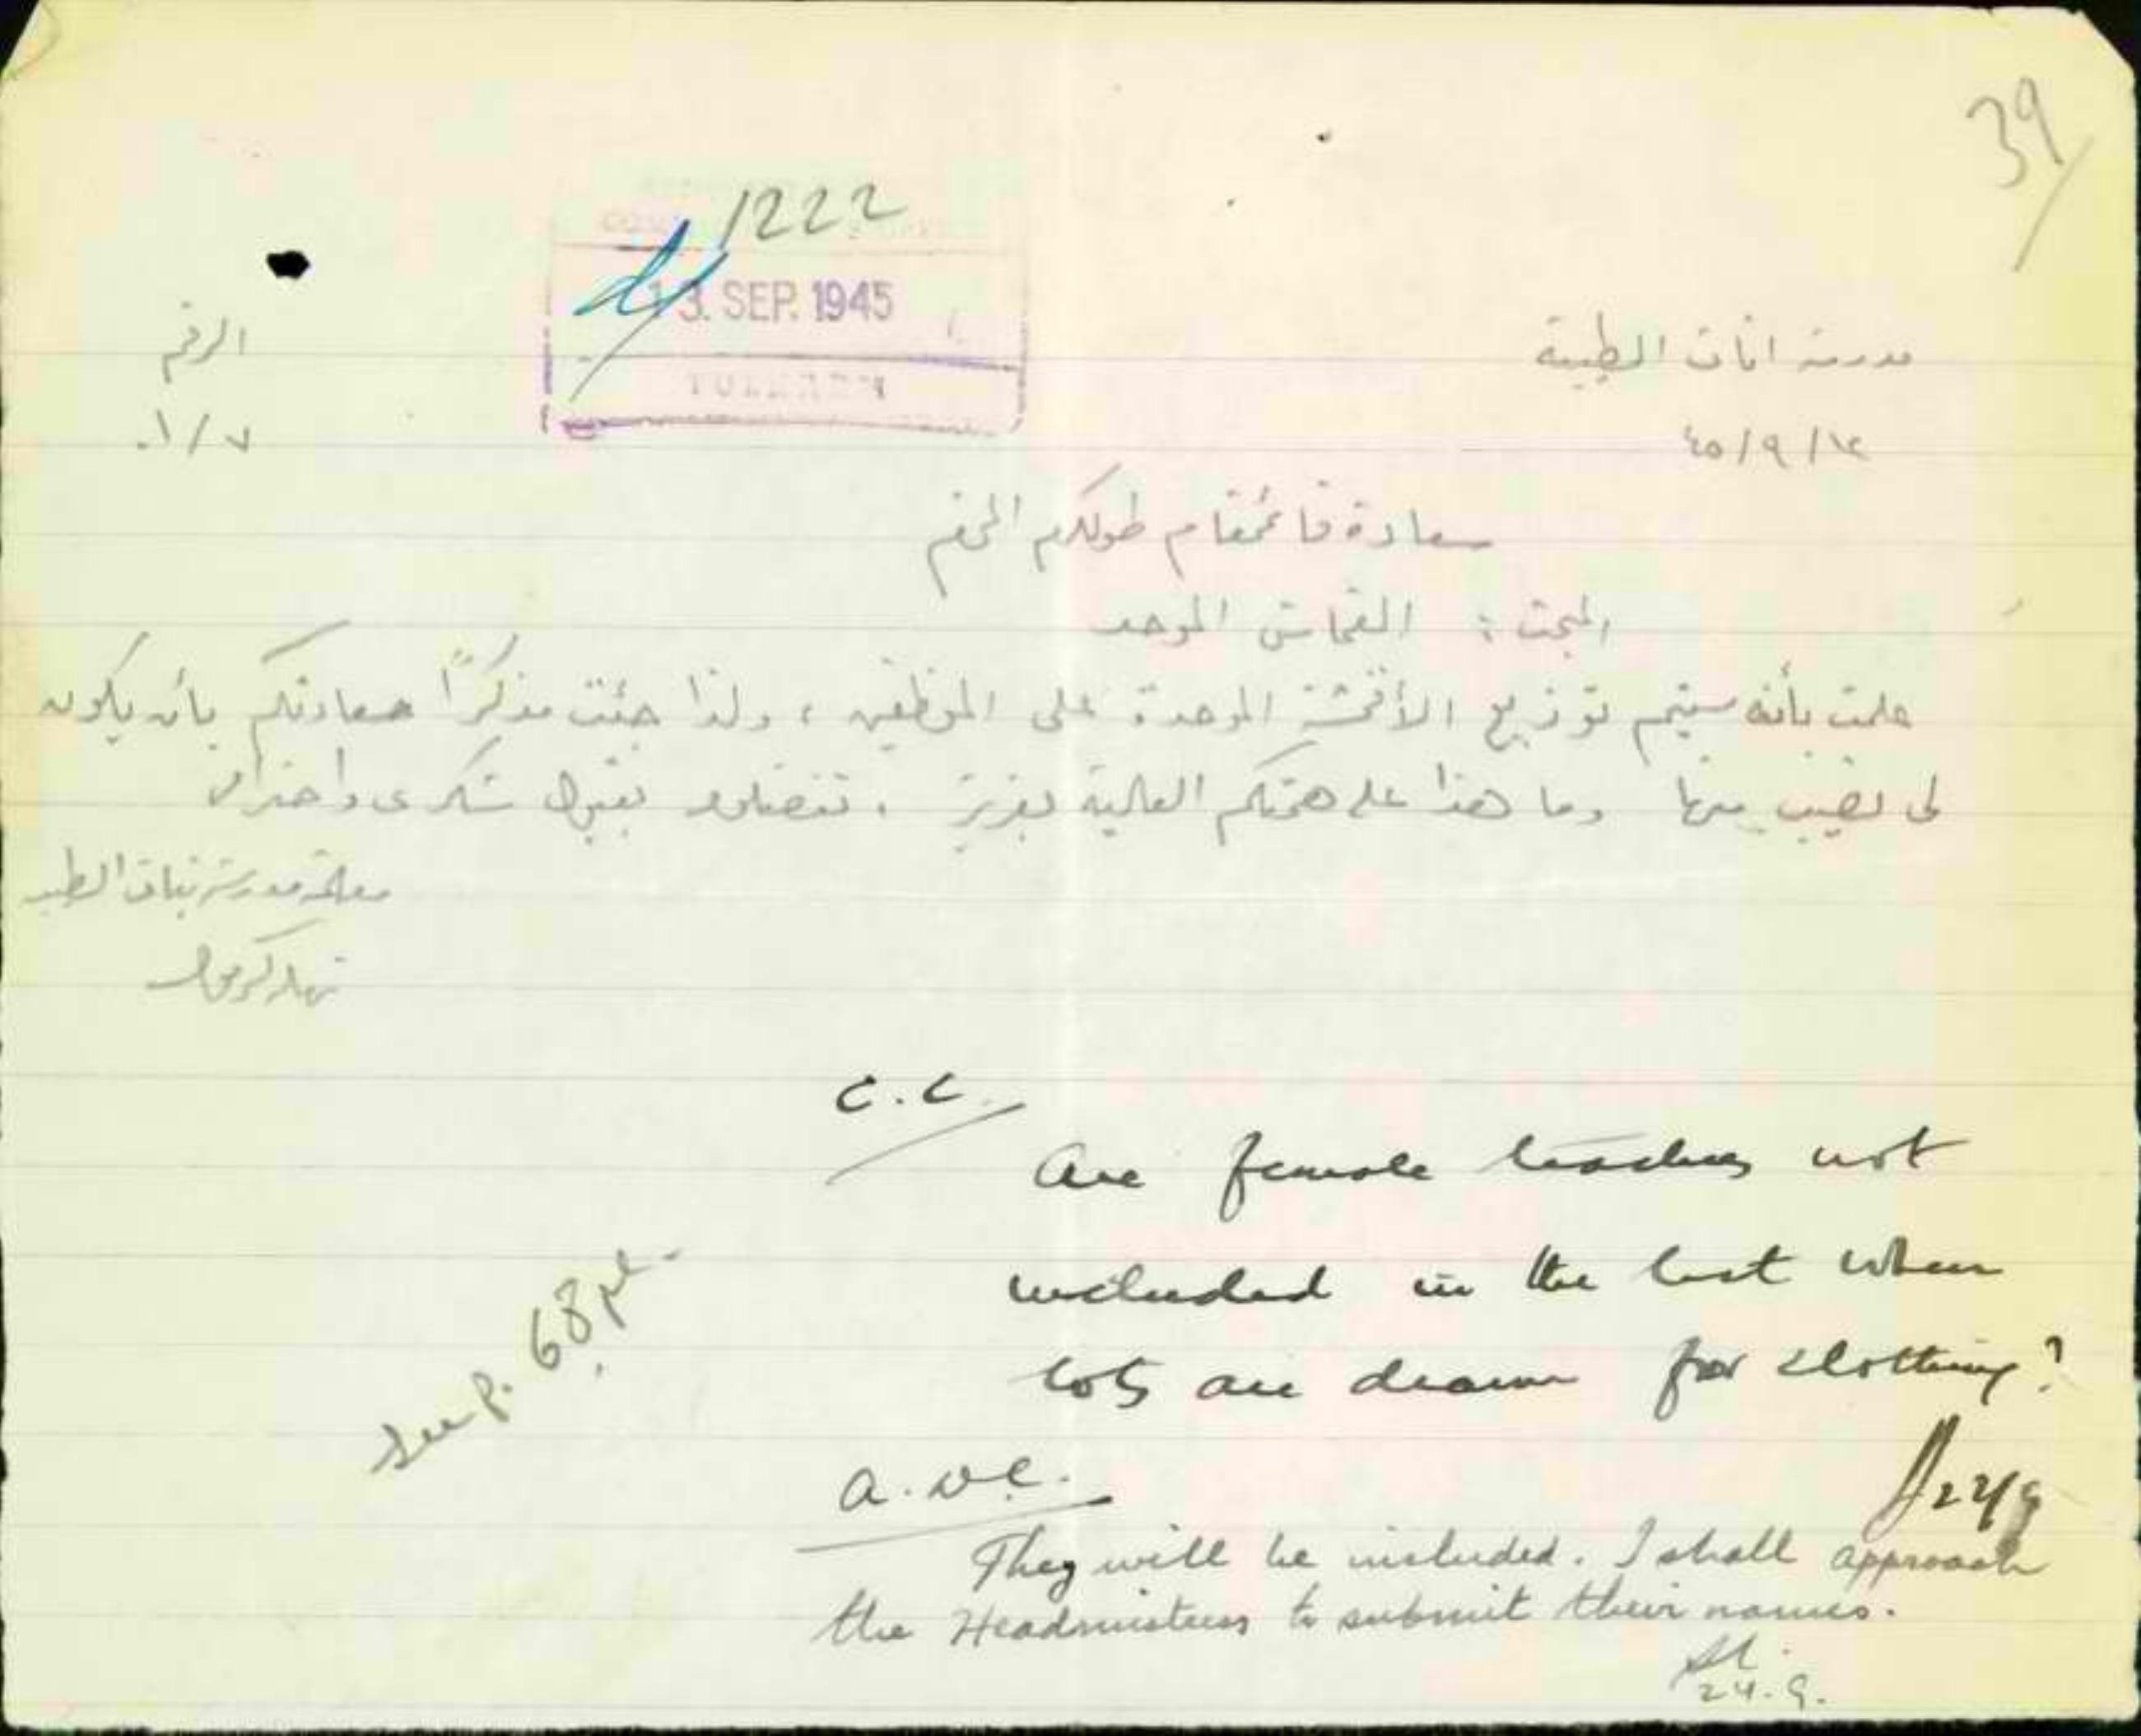 39
1222
13 SEP. 1945
TULKARM
مدرسة اناث الطيبة
الرقم
١٢/٩/٤٥
٧/١٠
سعادة قائمقام طولكرم المحترم
المبحث : القماش الموحد
علمت بأنه سيتم توزيع الأقمشة الموحدة على الموظفين ، ولذا جئت مذكراً سعادتكم بأن يكون
لي نصيب منها وما هذا على همتكم العالية بعزيز . تفضلوا بقبول شكري واحترامي
معلمة مدرسة بنات الطيبة
C.C.
Are female teachers not
included in the list when
lots are drawn for clothing?
22/9
See p. 68 pl.
A.D.C.
They will be included. I shall approach
the Headmistress to submit their names.
24.9.